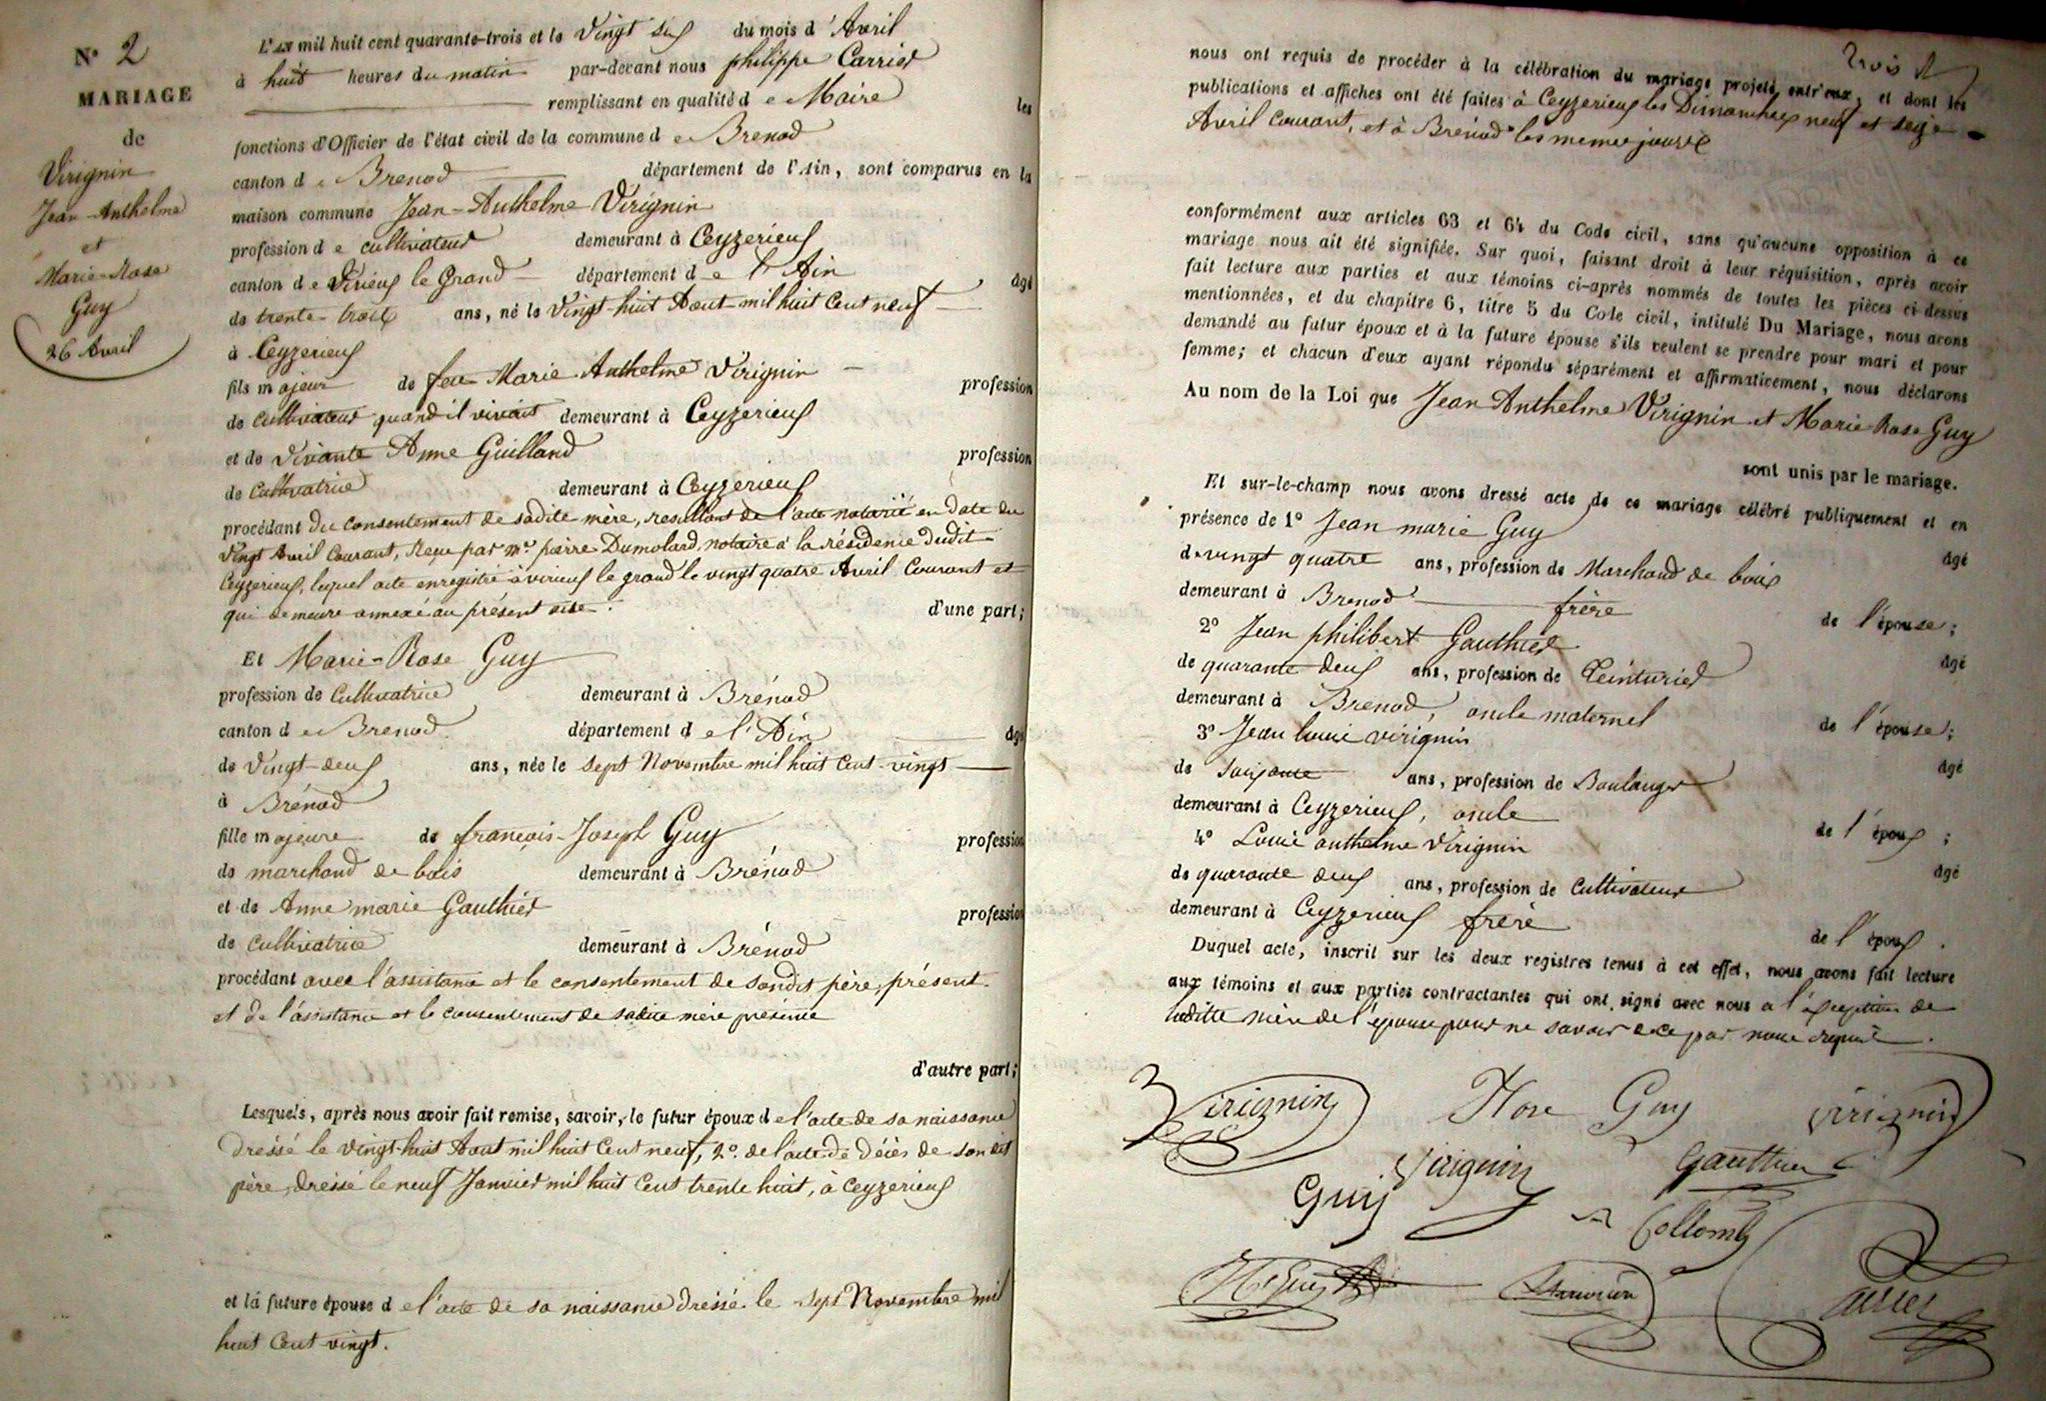 N° 2
MARIAGE
de
Virignin
Jean-Anthelme
et
Marie-Rose
Guy
26 Avril
L'an mil huit cent quarante-trois et le Vingt six du mois d'Avril
à huit heures du matin par-devant nous philippe Carrier
remplissant en qualité de Maire les
fonctions d'Officier de l'état civil de la commune de Brenod
canton de Brenod département de l'Ain, sont comparus en la
maison commune Jean-Anthelme Virignin
profession de cultivateur demeurant à Ceyzerieux
canton de Virieux le Grand département de l'Ain âgé
de trente-trois ans, né le Vingt-huit Aout mil huit Cent neuf
à Ceyzerieux
fils majeur de feu Marie Anthelme Virignin profession
de cultivateur quand il vivait demeurant à Ceyzerieux
et de vivante Anne Guilland profession
de cultivatrice demeurant à Ceyzerieux
procédant du consentement de sadite mère, resultant de l'acte notarié en date du
Vingt Avril Courant, Reçu par Me. pierre Dumolard, notaire à la résidence dudit
Ceyzerieux, lequel acte enregistré à virieux le grand le vingt quatre Avril Courant et
qui demeure annexé au présent acte. d'une part;
Et Marie-Rose Guy
profession de Cultivatrice demeurant à Brénod
canton de Brenod département de l'Ain âgé
de Vingt-deux ans, née le sept Novembre mil huit Cent-vingt
à Brénod
fille majeure de françois-Joseph Guy profession
de marchand de bois demeurant à Brénod
et de Anne marie Gauthier profession
de cultivatrice demeurant à Brénod
procédant avec l'assistance et le consentement de sondit père, présent
et de l'assistance et le consentement de sadite mère présente
d'autre part;
Lesquels, après nous avoir fait remise, savoir, le futur époux de l'acte de sa naissance
dressé le vingt-huit Aout mil huit Cent neuf, 2°. de l'acte de décès de son dit
père, dressé le neuf Janvier mil huit Cent trente huit, à Ceyzerieux
et la future épouse de l'acte de sa naissance dressé le sept Novembre mil
huit Cent-vingt.
trois
nous ont requis de procéder à la célébration du mariage projeté entr'eux, et dont les
publications et affiches ont été faites à Ceyzerieux les Dimanches neuf et seize
Avril Courant, et à Brénod les memes jours
conformément aux articles 63 et 64 du Code civil, sans qu'aucune opposition à ce
mariage nous ait été signifiée. Sur quoi, faisant droit à leur réquisition, après avoir
fait lecture aux parties et aux témoins ci-après nommés de toutes les pièces ci-dessus
mentionnées, et du chapitre 6, titre 5 du Code civil, intitulé Du Mariage, nous avons
demandé au futur époux et à la future épouse s'ils veulent se prendre pour mari et pour
femme; et chacun d'eux ayant répondu séparément et affirmativement, nous déclarons
Au nom de la Loi que Jean Anthelme Virignin et Marie-Rose Guy
sont unis par le mariage.
Et sur-le-champ nous avons dressé acte de ce mariage célébré publiquement et en
présence de 1° Jean marie Guy âgé
de vingt quatre ans, profession de Marchand de bois
demeurant à Brenod frère de l'épouse;
2° Jean philibert Gauthier âgé
de quarante deux ans, profession de Teinturier
demeurant à Brenod, oncle maternel de l'épouse;
3° Jean Louis virignin âgé
de soixante ans, profession de Boulanger
demeurant à Ceyzerieux, oncle de l'époux;
4° Louis anthelme Virignin âgé
de quarante deux ans, profession de cultivateur
demeurant à Ceyzerieux frère de l'époux.
Duquel acte, inscrit sur les deux registres tenus à cet effet, nous avons fait lecture
aux témoins et aux parties contractantes qui ont signé avec nous a l'exception de
ladite mère de l'épouse pour ne savoir de ce par nous requise.
Virignin Rose Guy virignin
Guy Virignin Gauthier
Collomb
Carrier